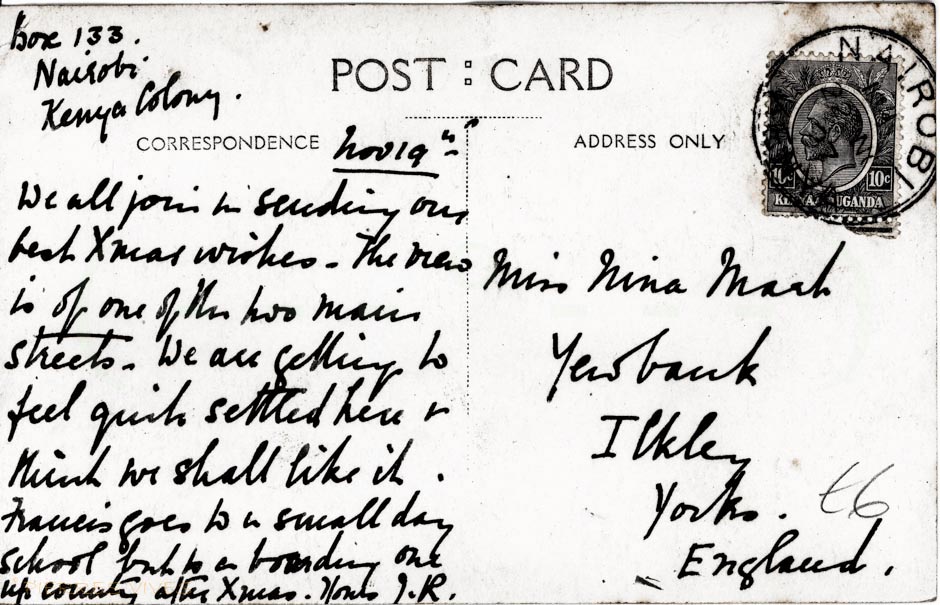 Box 133.
Nairobi
Kenya Colony.
POST : CARD
CORRESPONDENCE
Nov 19th
ADDRESS ONLY
We all join in sending our
best Xmas wishes. The view
is of one of the two main
streets. We are getting to
feel quite settled here &
think we shall like it.
Francis goes to a small day
school but to a boarding one
up country after Xmas. Yours J.R.
NAIROBI
10c 10c
KENYA UGANDA
Miss Nina Mach
Yewbank
Ilkley
Yorks.
England.
£6